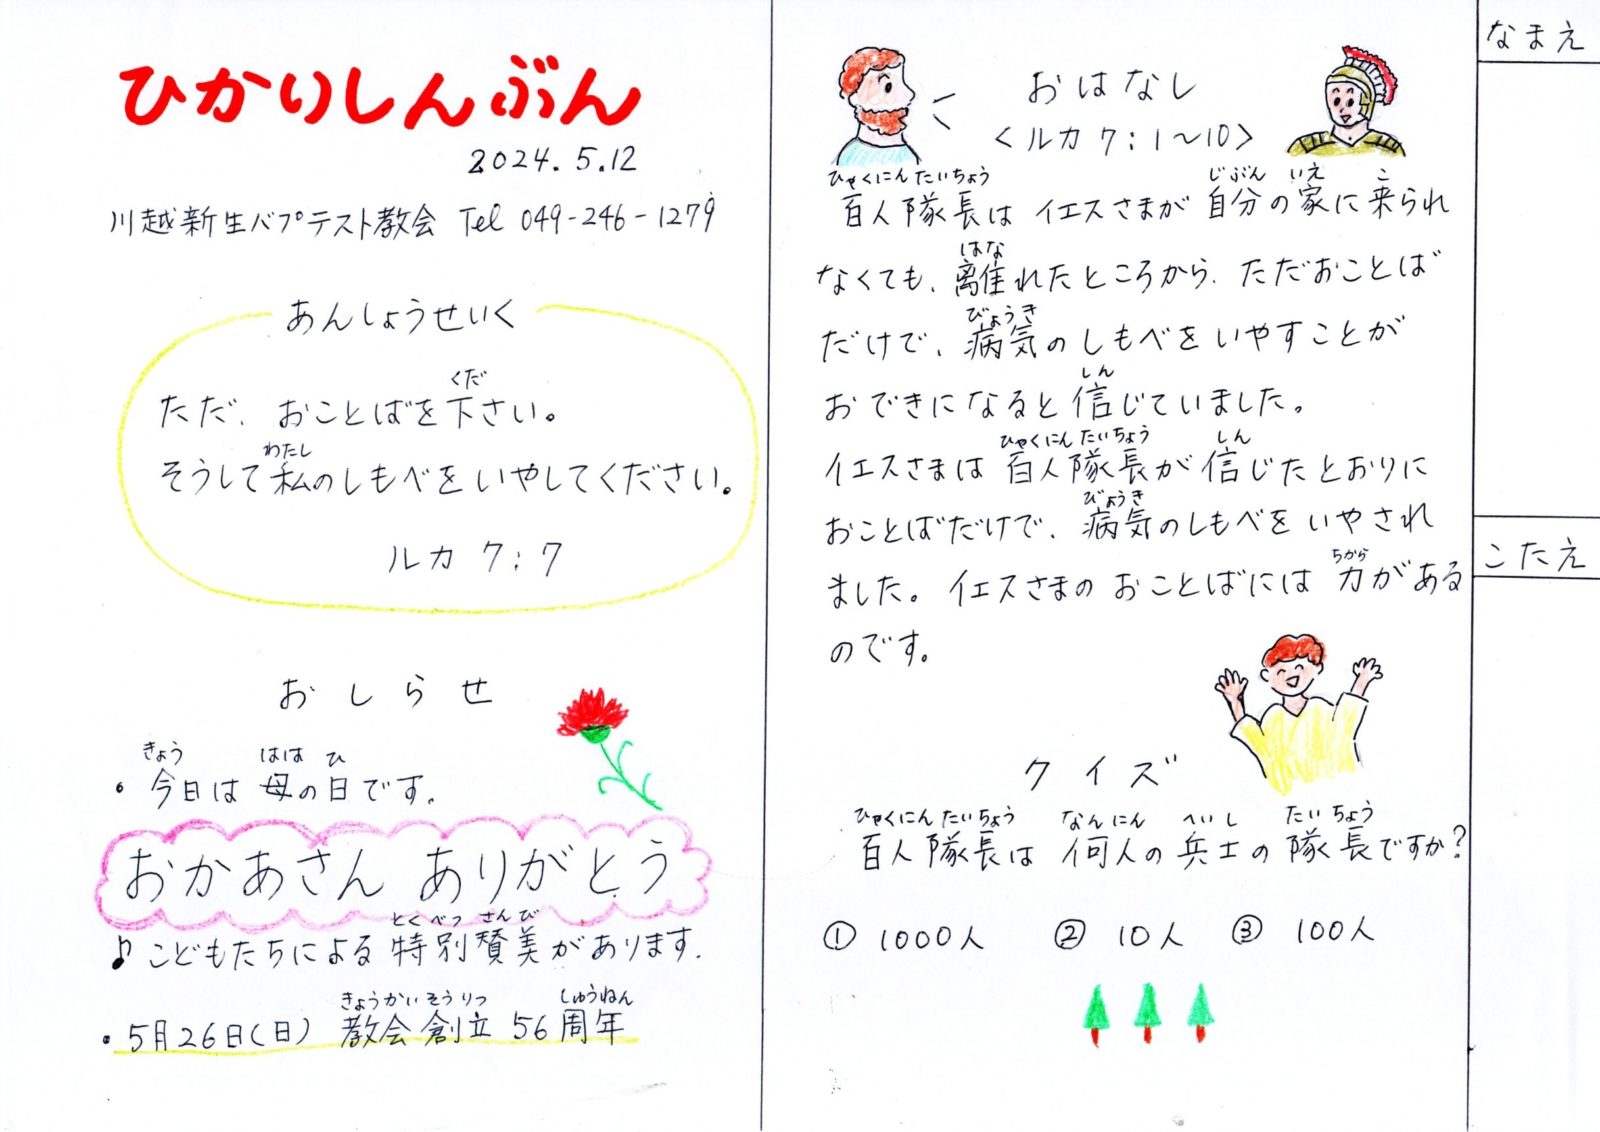 ひかりしんぶん
2024.5.12
川越新生バプテスト教会 Tel 049-246-1279
あんしょうせいく
くだ
ただ、おことばを下さい。
わたし
そうして私のしもべをいやしてください。
ルカ 7:7
おしらせ
きょう はは ひ
・今日は母の日です。
おかあさん ありがとう
とくべつ さんび
♪こどもたちによる特別賛美があります。
きょうかいそうりつ しゅうねん
・5月26日(日) 教会創立 56周年
おはなし
<ルカ 7:1〜10>
ひゃくにんたいちょう じぶん いえ こ
百人隊長は イエスさまが 自分の家に来られ
はな
なくても、離れたところから、ただおことば
びょうき
だけで、病気のしもべをいやすことが
しん
おできになると信じていました。
ひゃくにんたいちょう しん
イエスさまは百人隊長が信じたとおりに
びょうき
おことばだけで、病気のしもべをいやされ
ちから
ました。イエスさまのおことばには力がある
のです。
クイズ
ひゃくにんたいちょう なんにん へいし たいちょう
百人隊長は 何人の兵士の隊長ですか?
① 1000人 ② 10人 ③ 100人
なまえ
こたえ